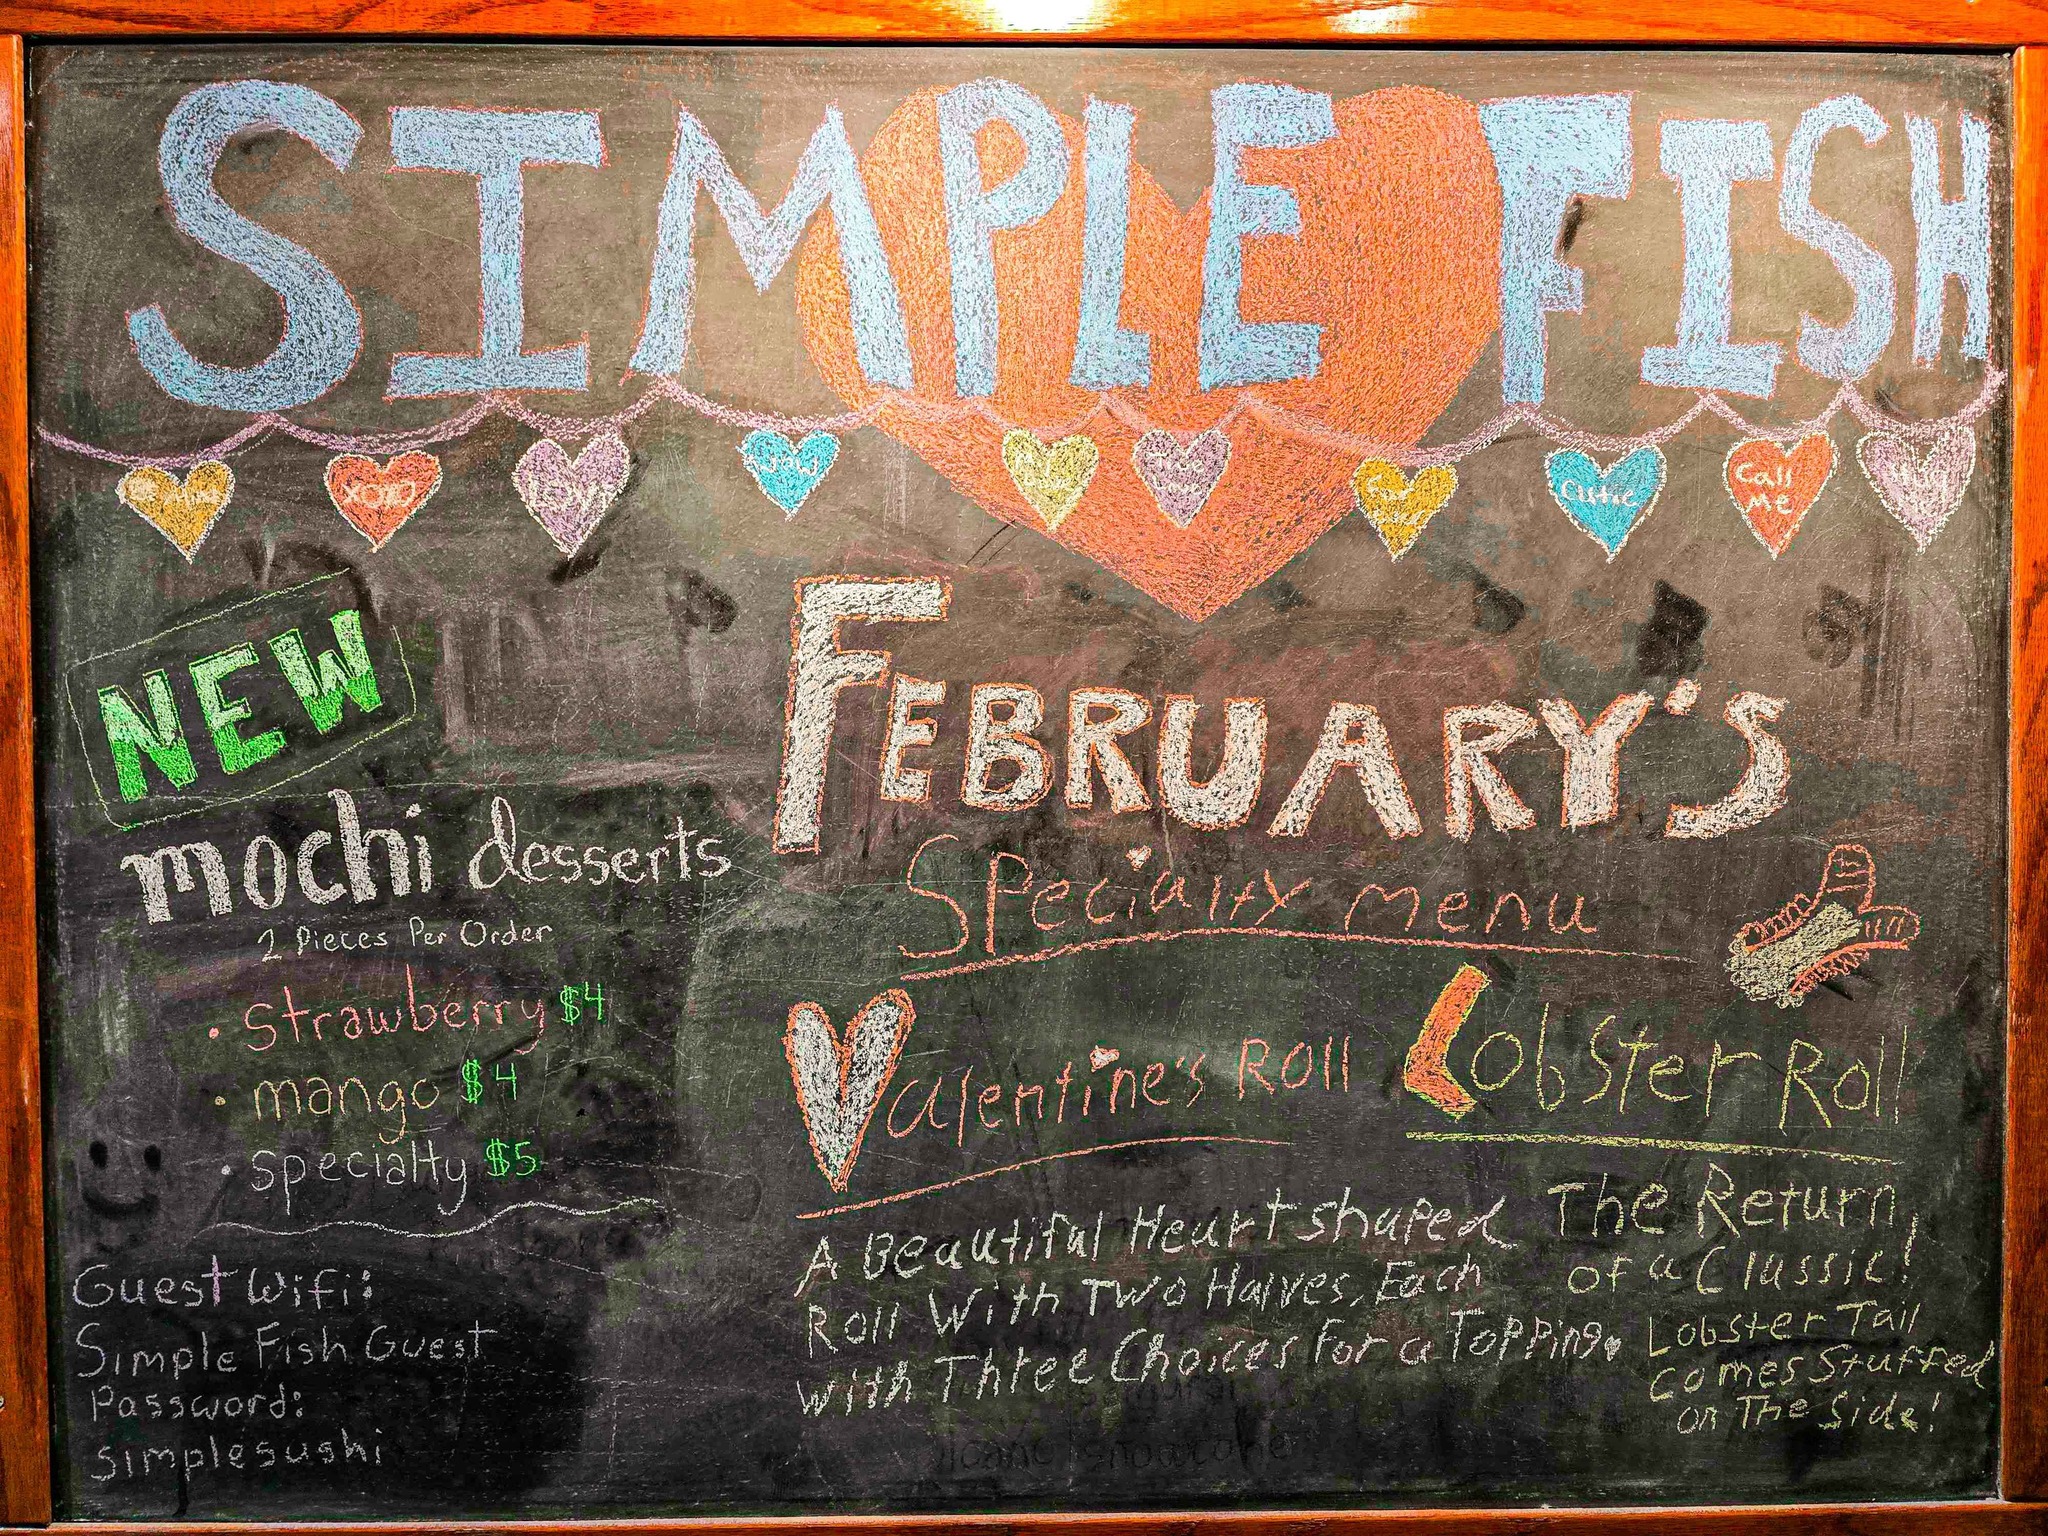 SIMPLE FISH
XOXO
LOVE
WOW
True Love
For
Cutie
Call Me
NEW
mochi desserts
2 Pieces Per Order
• strawberry $4
• mango $4
• specialty $5
Guest Wifi:
Simple Fish Guest
Password:
simplesushi
FEBRUARY'S
Specialty menu
Valentine's Roll
A Beautiful Heart shaped
Roll With Two Halves, Each
with Three Choices for a Topping.
Lobster Roll
The Return
of a Classic!
Lobster Tail
comes Stuffed
on The Side!